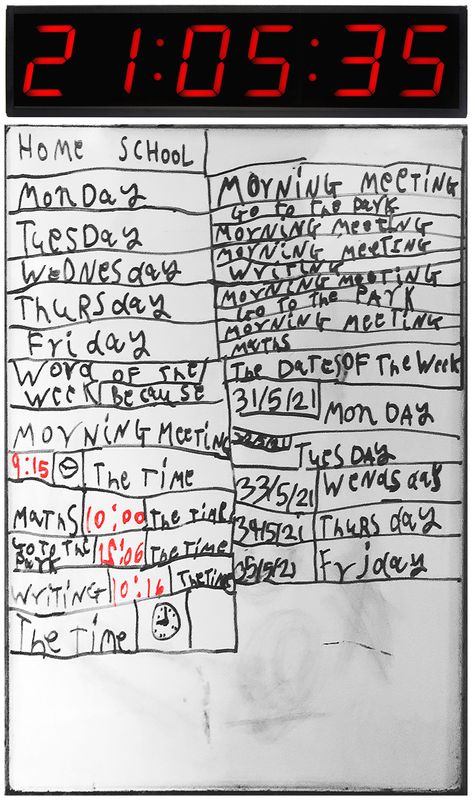 21:05:35
HOME SCHOOL
MONDAY
MORNING MEETING
GO TO THE PARK
TUESDAY
MORNING MEETING
MORNING MEETING
WEDNESDAY
WRITING
MORNING MEETING
THURSDAY
GO TO THE PARK
MORNING MEETING
FRIDAY
MATHS
WORD OF THE
WEEK BECAUSE
THE DATES OF THE WEEK
31/5/21 MONDAY
MORNING MEETING
TUESDAY
9:15 THE TIME
33/5/21 WENDSDAY
MATHS 10:00 THE TIME
34/5/21 THURSDAY
GO TO THE
PARK THE TIME
35/5/21 FRIDAY
WRITING 10:16 THE TIME
THE TIME